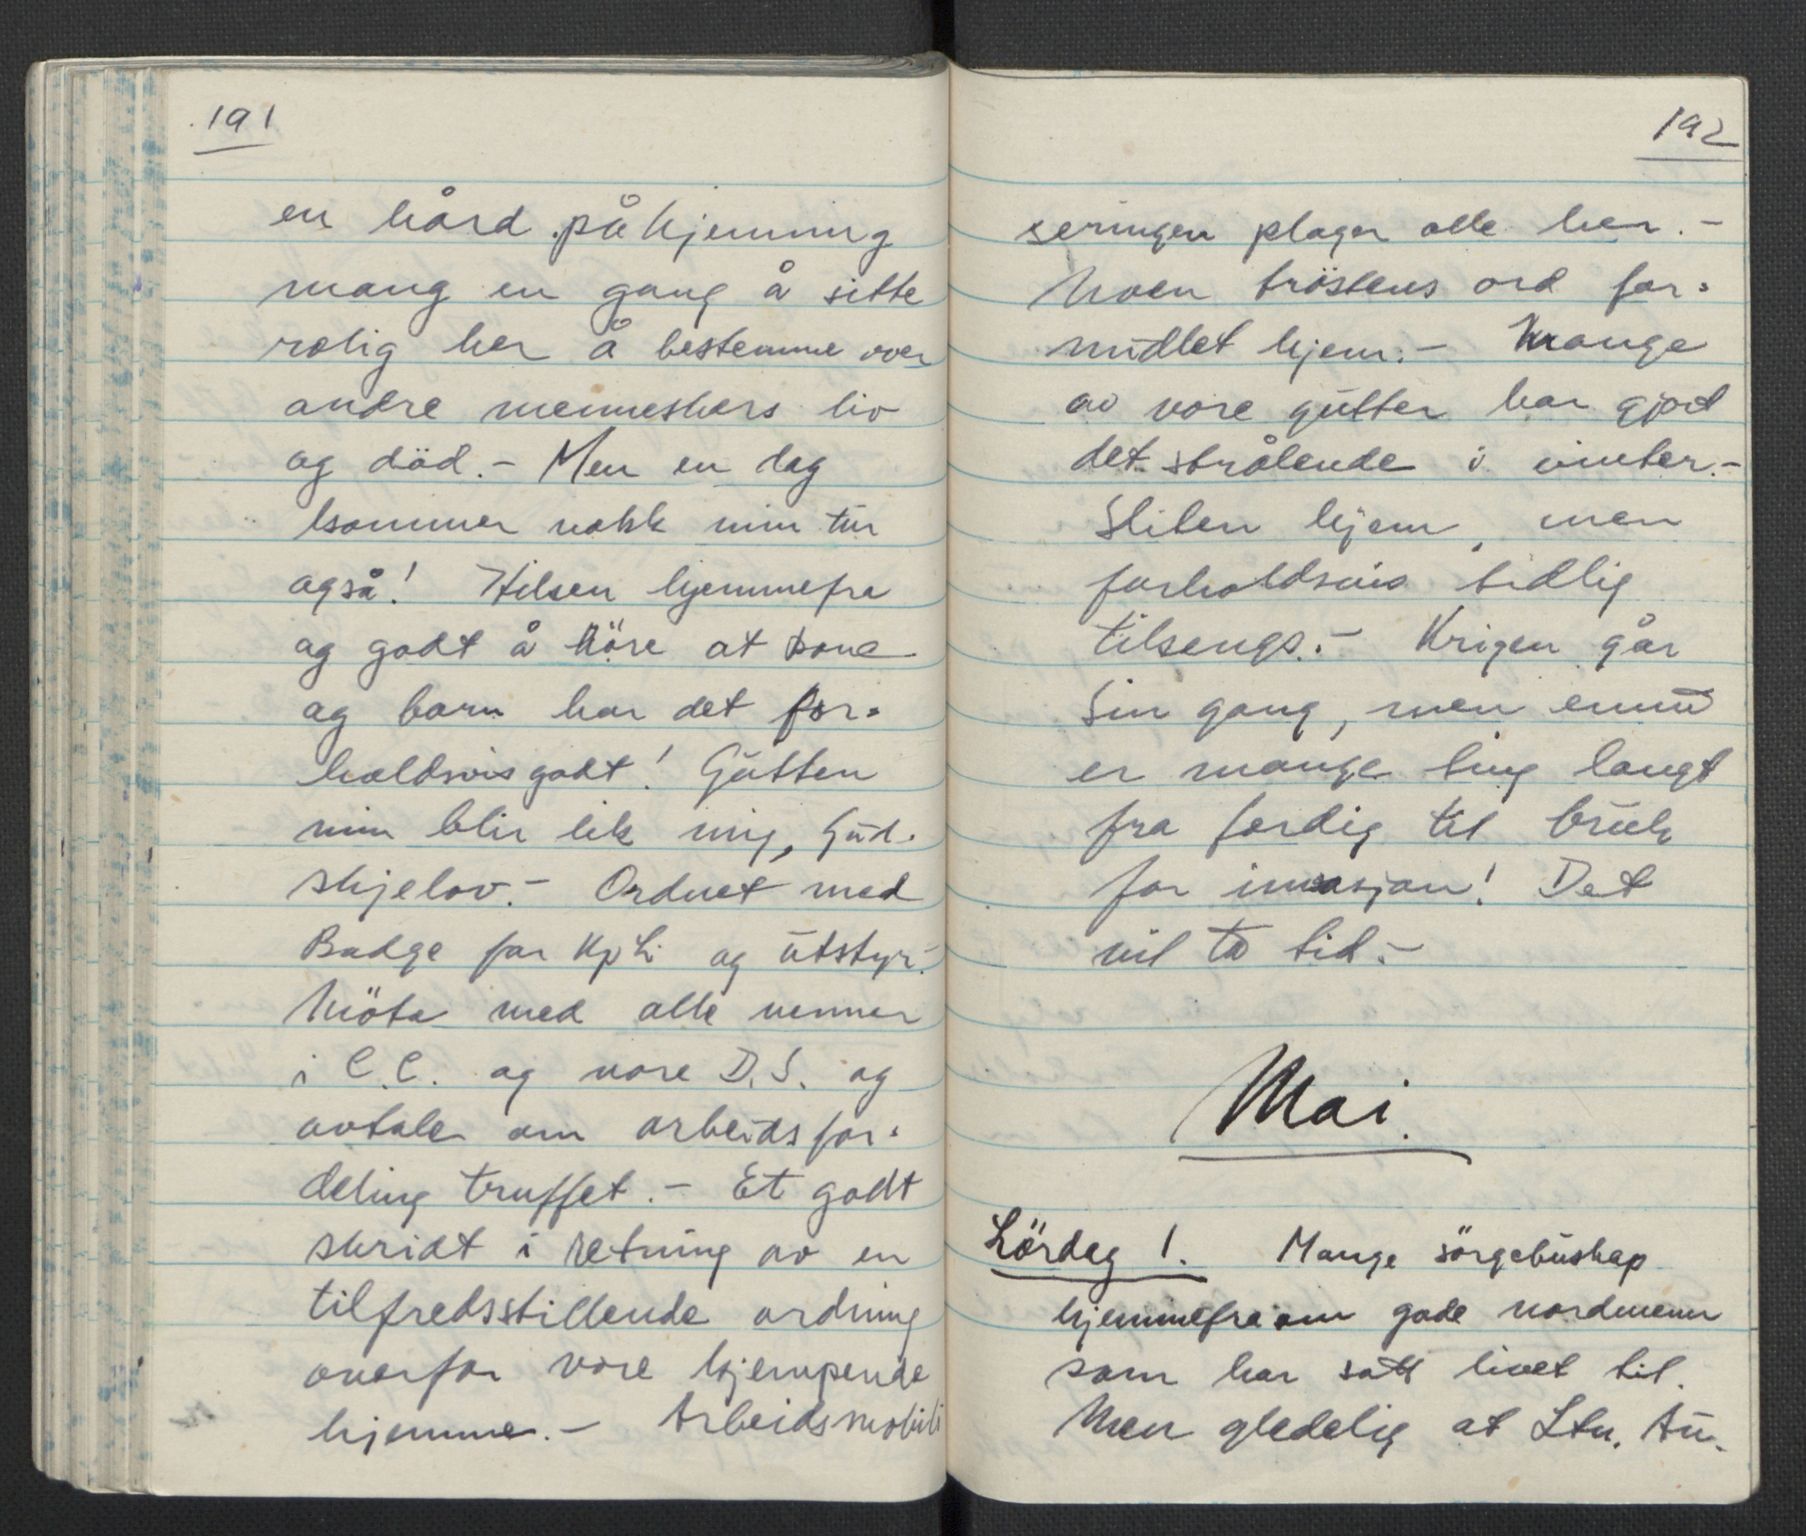 191
en hård påkjenning
mang en gang å sitte
rolig her å bestemme over
andre menneskers liv
og död. - Men en dag
kommer nokk min tur
også! Hilsen hjemmefra
og godt å höre at kone
og barn har det for-
holdsvis godt! Gutten
min blir lik mig, Gud-
skjelov. - Ordnet med
Badge for Kp Li og utstyr. -
Möte med alle venner
i C.C. og vore D.S. og
avtale om arbeidsfor-
deling truffet. - Et godt
skridt i retning av en
tilfredsstillende ordning
overfor vore kjempende
hjemme. - Arbeidsmobili
192
seringen plager alle her. -
Noen tröstens ord for-
midlet hjem. - Mange
av vore gutter har gjort
det strålende i vinter. -
Sliten hjem, men
forholdsvis tidlig
tilsengs. - Krigen går
sin gang, men ennu
er mange ting langt
fra ferdig til bruk
for invasjon! Det
vil ta tid. -
Mai.
Lördag 1. Mange sörgebuskap
hjemmefra om gode nordmenn
som har satt livet til.
Men gledelig at Ltn. Au-